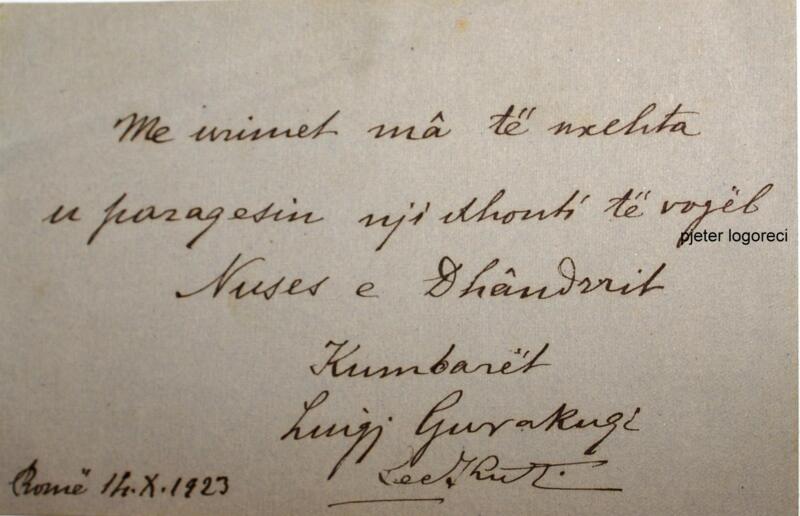 Me urimet mâ të nxehta
u paragesin nji dhontí të vogël
pjeter logoreci
Nuses e Dhândrrit
Kumbarët
Luigj Gurakuqi
Romë 14.X.1923